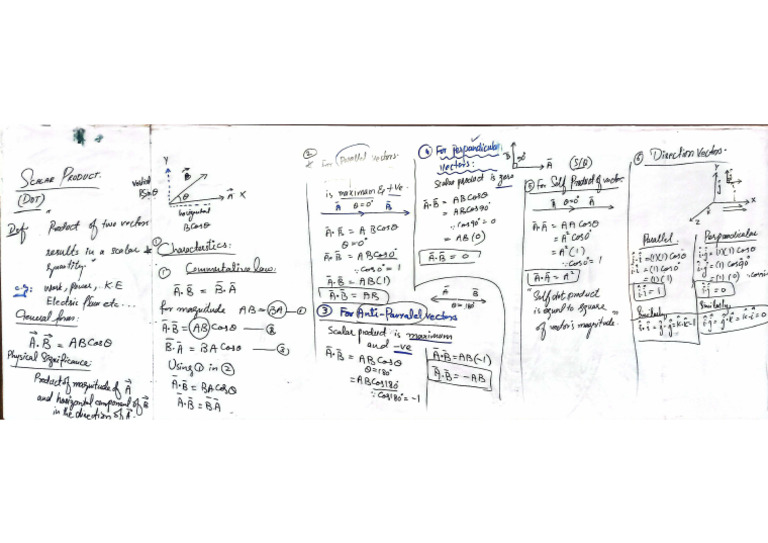 SCALAR PRODUCT.
(DOT)
Def. Product of two vectors
results in a scalar
quantity"
e.g: work, power, K.E
Electric flux etc...
General form:
A⃗.B⃗ = ABCosθ
Physical Significance:
Product of magnitude of A⃗
and horizontal component of B⃗
in the direction of A⃗.
Y
B⃗
vertical
BSinθ
θ
A⃗ X
horizontal
BCosθ
* ① Characterstics:
① Commutative law:
A⃗.B⃗ = B⃗.A⃗
for magnitude AB = BA —①
A⃗.B⃗ = ABCosθ —②
B⃗.A⃗ = BACosθ —③
Using ① in ②
A⃗.B⃗ = BACosθ
A⃗.B⃗ = B⃗A⃗
②
* For Parallel vectors
is maximum & +ve.
A⃗ θ=0° B⃗
A⃗.B⃗ = ABCosθ
θ = 0°
A⃗.B⃗ = ABCos0°
∵ Cos0° = 1
A⃗.B⃗ = AB(1)
A⃗.B⃗ = AB
③ For Anti-Parralel vectors
Scalar product is maximum
and -ve
A⃗.B⃗ = ABCosθ
θ=180°
= ABCos180°
∵ Cos180° = -1
A⃗ B⃗
θ = 180°
A⃗.B⃗ = AB(-1)
A⃗.B⃗ = -AB
④ For Perpandicular
vectors:
Scalar product is zero
B⃗ 90° A⃗
A⃗.B⃗ = ABCosθ
= ABCos90°
∵ Cos90° = 0
= AB(0)
A⃗.B⃗ = 0
(S/B)
⑤ For Self Product of vector
A⃗ θ=0° A⃗
A⃗.A⃗ = AACosθ
= A²Cos0°
= A²(1)
∵ Cos0° = 1
A⃗.A⃗ = A²
"Self dot product
is equal to square
of vector's magnitude."
⑥ Direction vectors.
Y
X
Z
Parallel:
î.î = (1)(1)Cosθ
î.î = (1)Cos0°
= (1)(1)
î.î = 1
Similarly
î.î = ĵ.ĵ = k̂.k̂ = 1
Perpandicular
î.ĵ = (1)(1)Cosθ
î.ĵ = (1)Cos90°
î.ĵ = 0
Similarly:
î.ĵ = ĵ.k̂ = k̂.î = 0